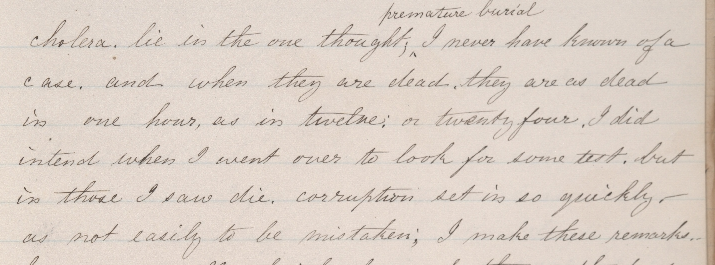 premature burial
cholera. lie in the one thought; I never have known of a
case. and when they are dead. they are as dead
in one hour, as in twelve; or twenty four. I did
intend when I went over to look for some test. but
in those I saw die. corruption set in so quickly.
as not easily to be mistaken; I make these remarks..